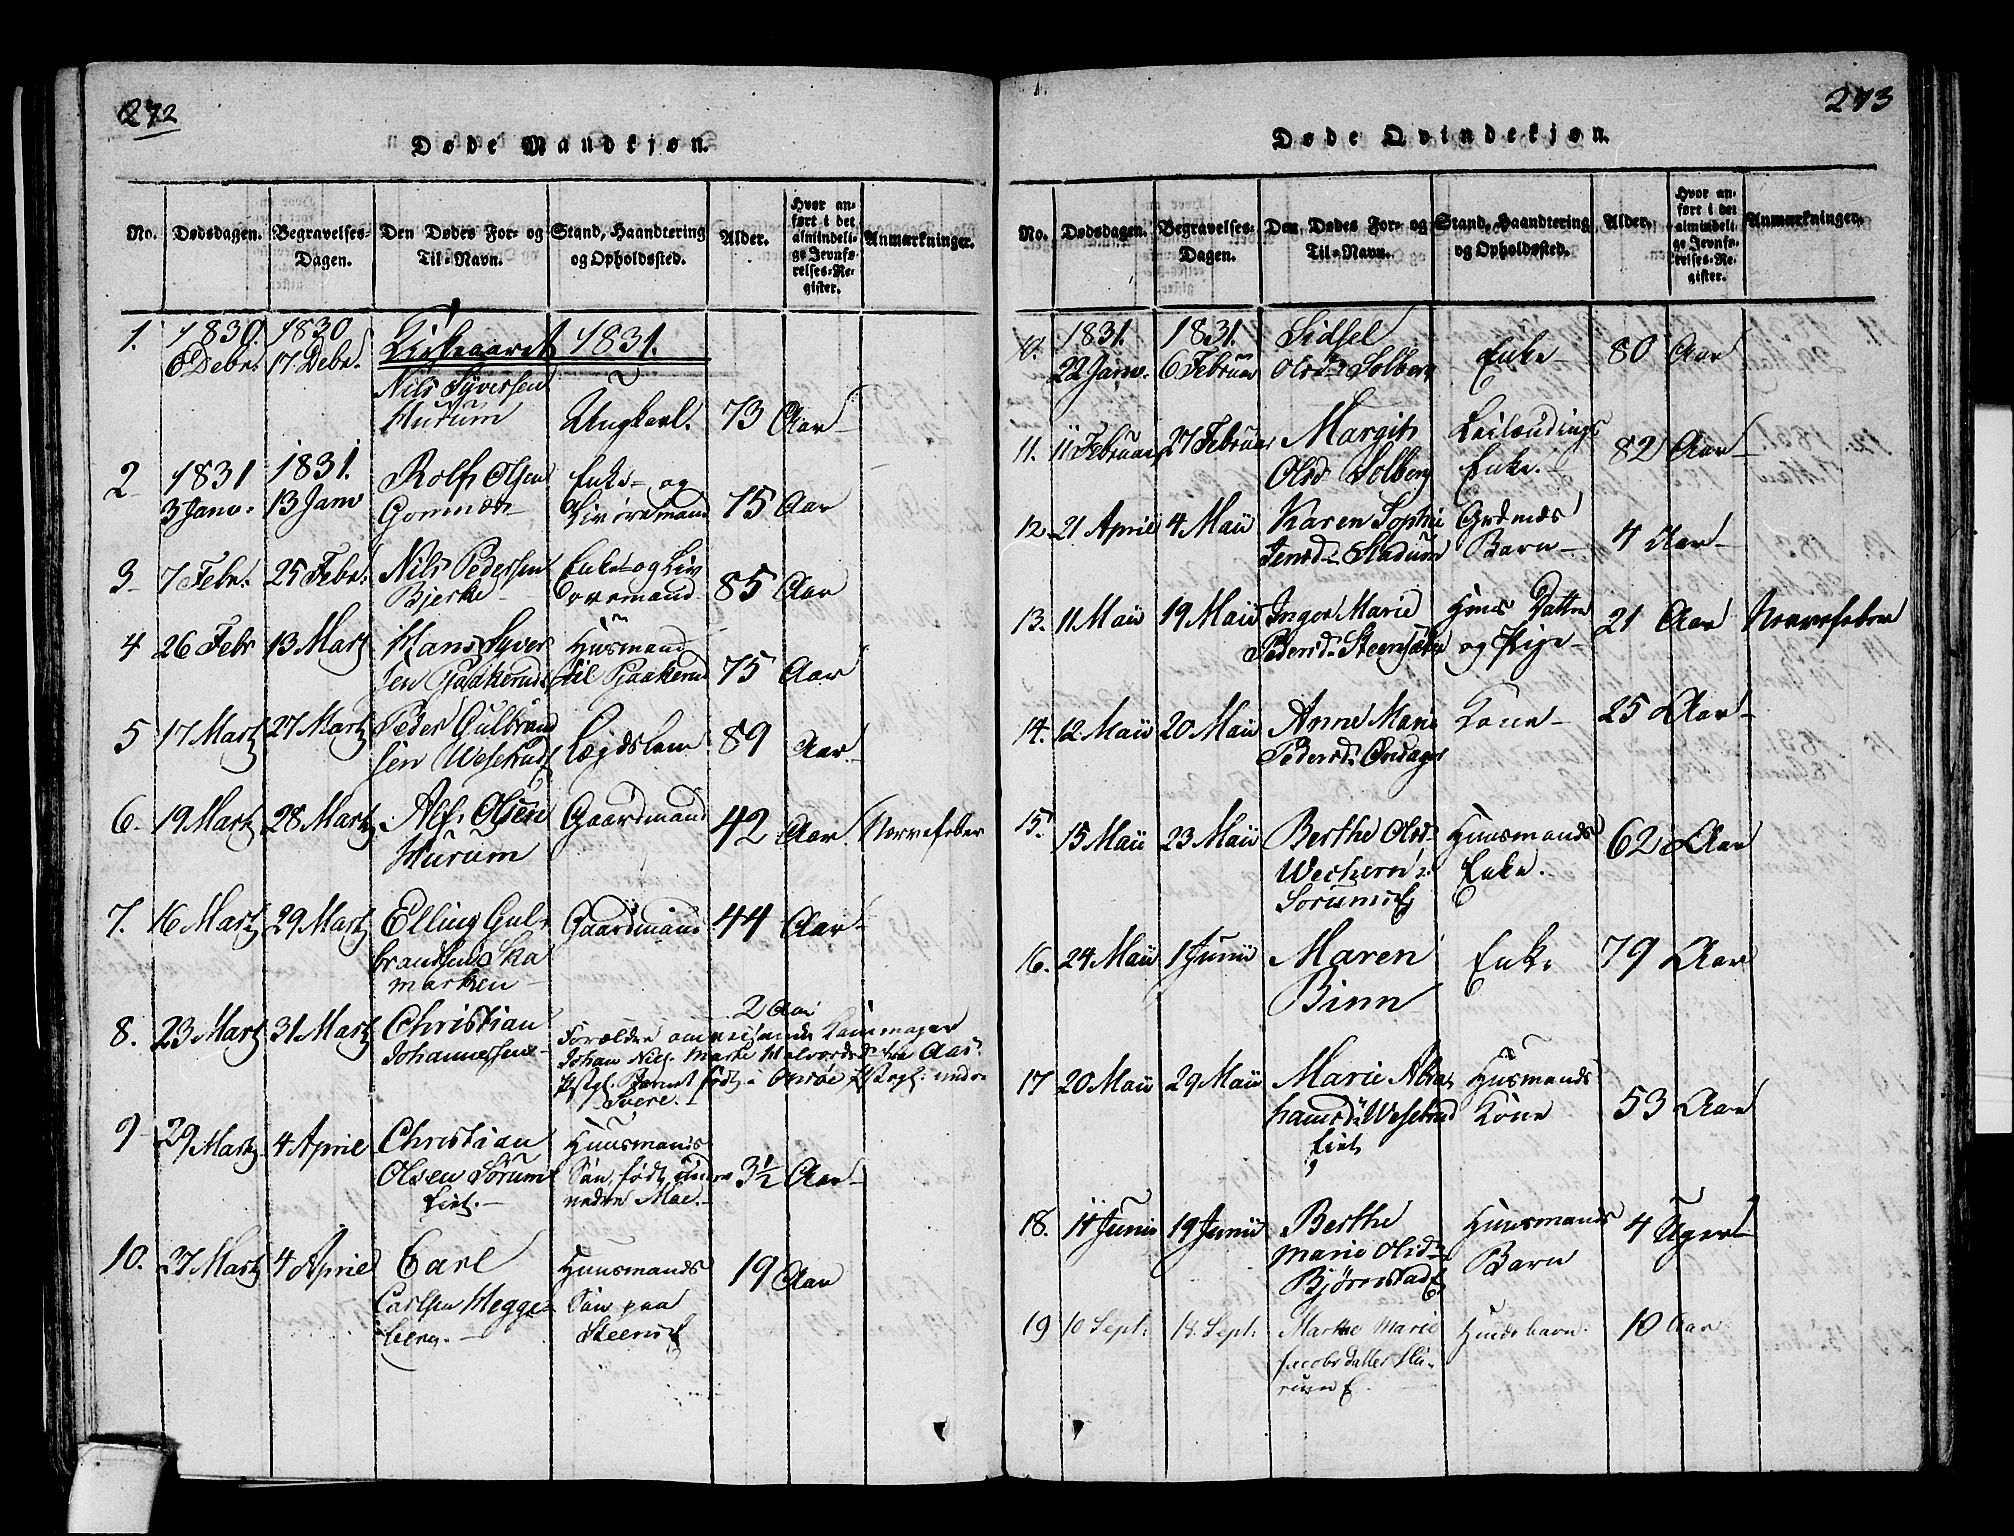 272
Døde Mandkjøn.
No. Dødsdagen. Begravelses-Dagen. Den Dødes For- og Til-Navn. Stand, Haandtering og Opholdssted. Alder. Hvor anført i det almindelige Jevnførelses-Register. Anmærkninger.
1. 1830. 1830 Kirkeaaret 1831.
6 Debr. 17 Debr.
Nils Syversen
Hurum Ungkarl. 73 Aar
2 1831 1831. Rolf Olsen Enke- og
3 Janv. 13 Janv Gommæs Livøremand 75 Aar
3 7 Febr. 25 Febr. Nils Pedersen Enke- og Liv
Bjerke øremand 85 Aar
4 26 Febr 13 Martz Hans Syver Husmand
sen til 75 Aar
5 17 Martz 27 Martz Peder Gulbrand
sen Wesetrud Lægdslem 89 Aar
6. 19 Martz 28 Martz Alf Olsen Gaardmand 42 Aar Nervefeber
Hurum
7. 16 Martz 29 Martz Elling Gul- Gaardmand 44 Aar
brandsen Ska
marken
8. 23 Martz 31 Martz Christian 2 Aar
Johannessen Forældre omreisende
Johan Nils. fra Aas
Pstgl. Barnet født i Pstegl:
9 29 Martz 4 April Christian Huusmands
Olsen Sørum Søn, født 3½ Aar
Eiet.
10. 27 Martz 4 April Carl Huusmands 19 Aar
Carlsen Hegge Søn paa
berg. Steens E
273
Døde Qvindekjøn.
No. Dødsdagen. Begravelses-Dagen. Den Dødes For- og Til-Navn. Stand, Haandtering og Opholdssted. Alder. Hvor anført i det almindelige Jevnførelses-Register. Anmærkninger.
10. 1831. 1831. Sidsel
22 Janv. 6 Februar Olsd Solberg Enke 80 Aar
11. 11 Februar 27 Februar Margit Leilændings
Olsd Solberg Enke. 82 Aar
12 21 April 4 Maii Karen Sophie Grdmds
Jensd: Stadum Barn 4 Aar
13. 11 Maii 19 Maii Inger Marie Huus Datter 21 Aar Nervefeber
Pedersd: og Pige
14. 12 Maii 20 Maii Anne Marie Kone 25 Aar
Pedersd:
15. 15 Maii 23 Maii Berthe Olsd Huusmands 62 Aar
Enke.
Sørums E
16. 24 Maii 1 Junii Maren Enke 79 Aar
Binn
17 20 Maii 29 Maii Marie Abra Husmands
hamsd: Wesetrud Kone 53 Aar
Eiet
18. 11 Junii 19 Junii Berthe Huusmands 4 Uger
Marie Olsd Barn
Bjørnstad E
19 10 Sept: 18. Sept: Marthe Marie 10 Aar
Jacobsdatter Hu-
rum E.